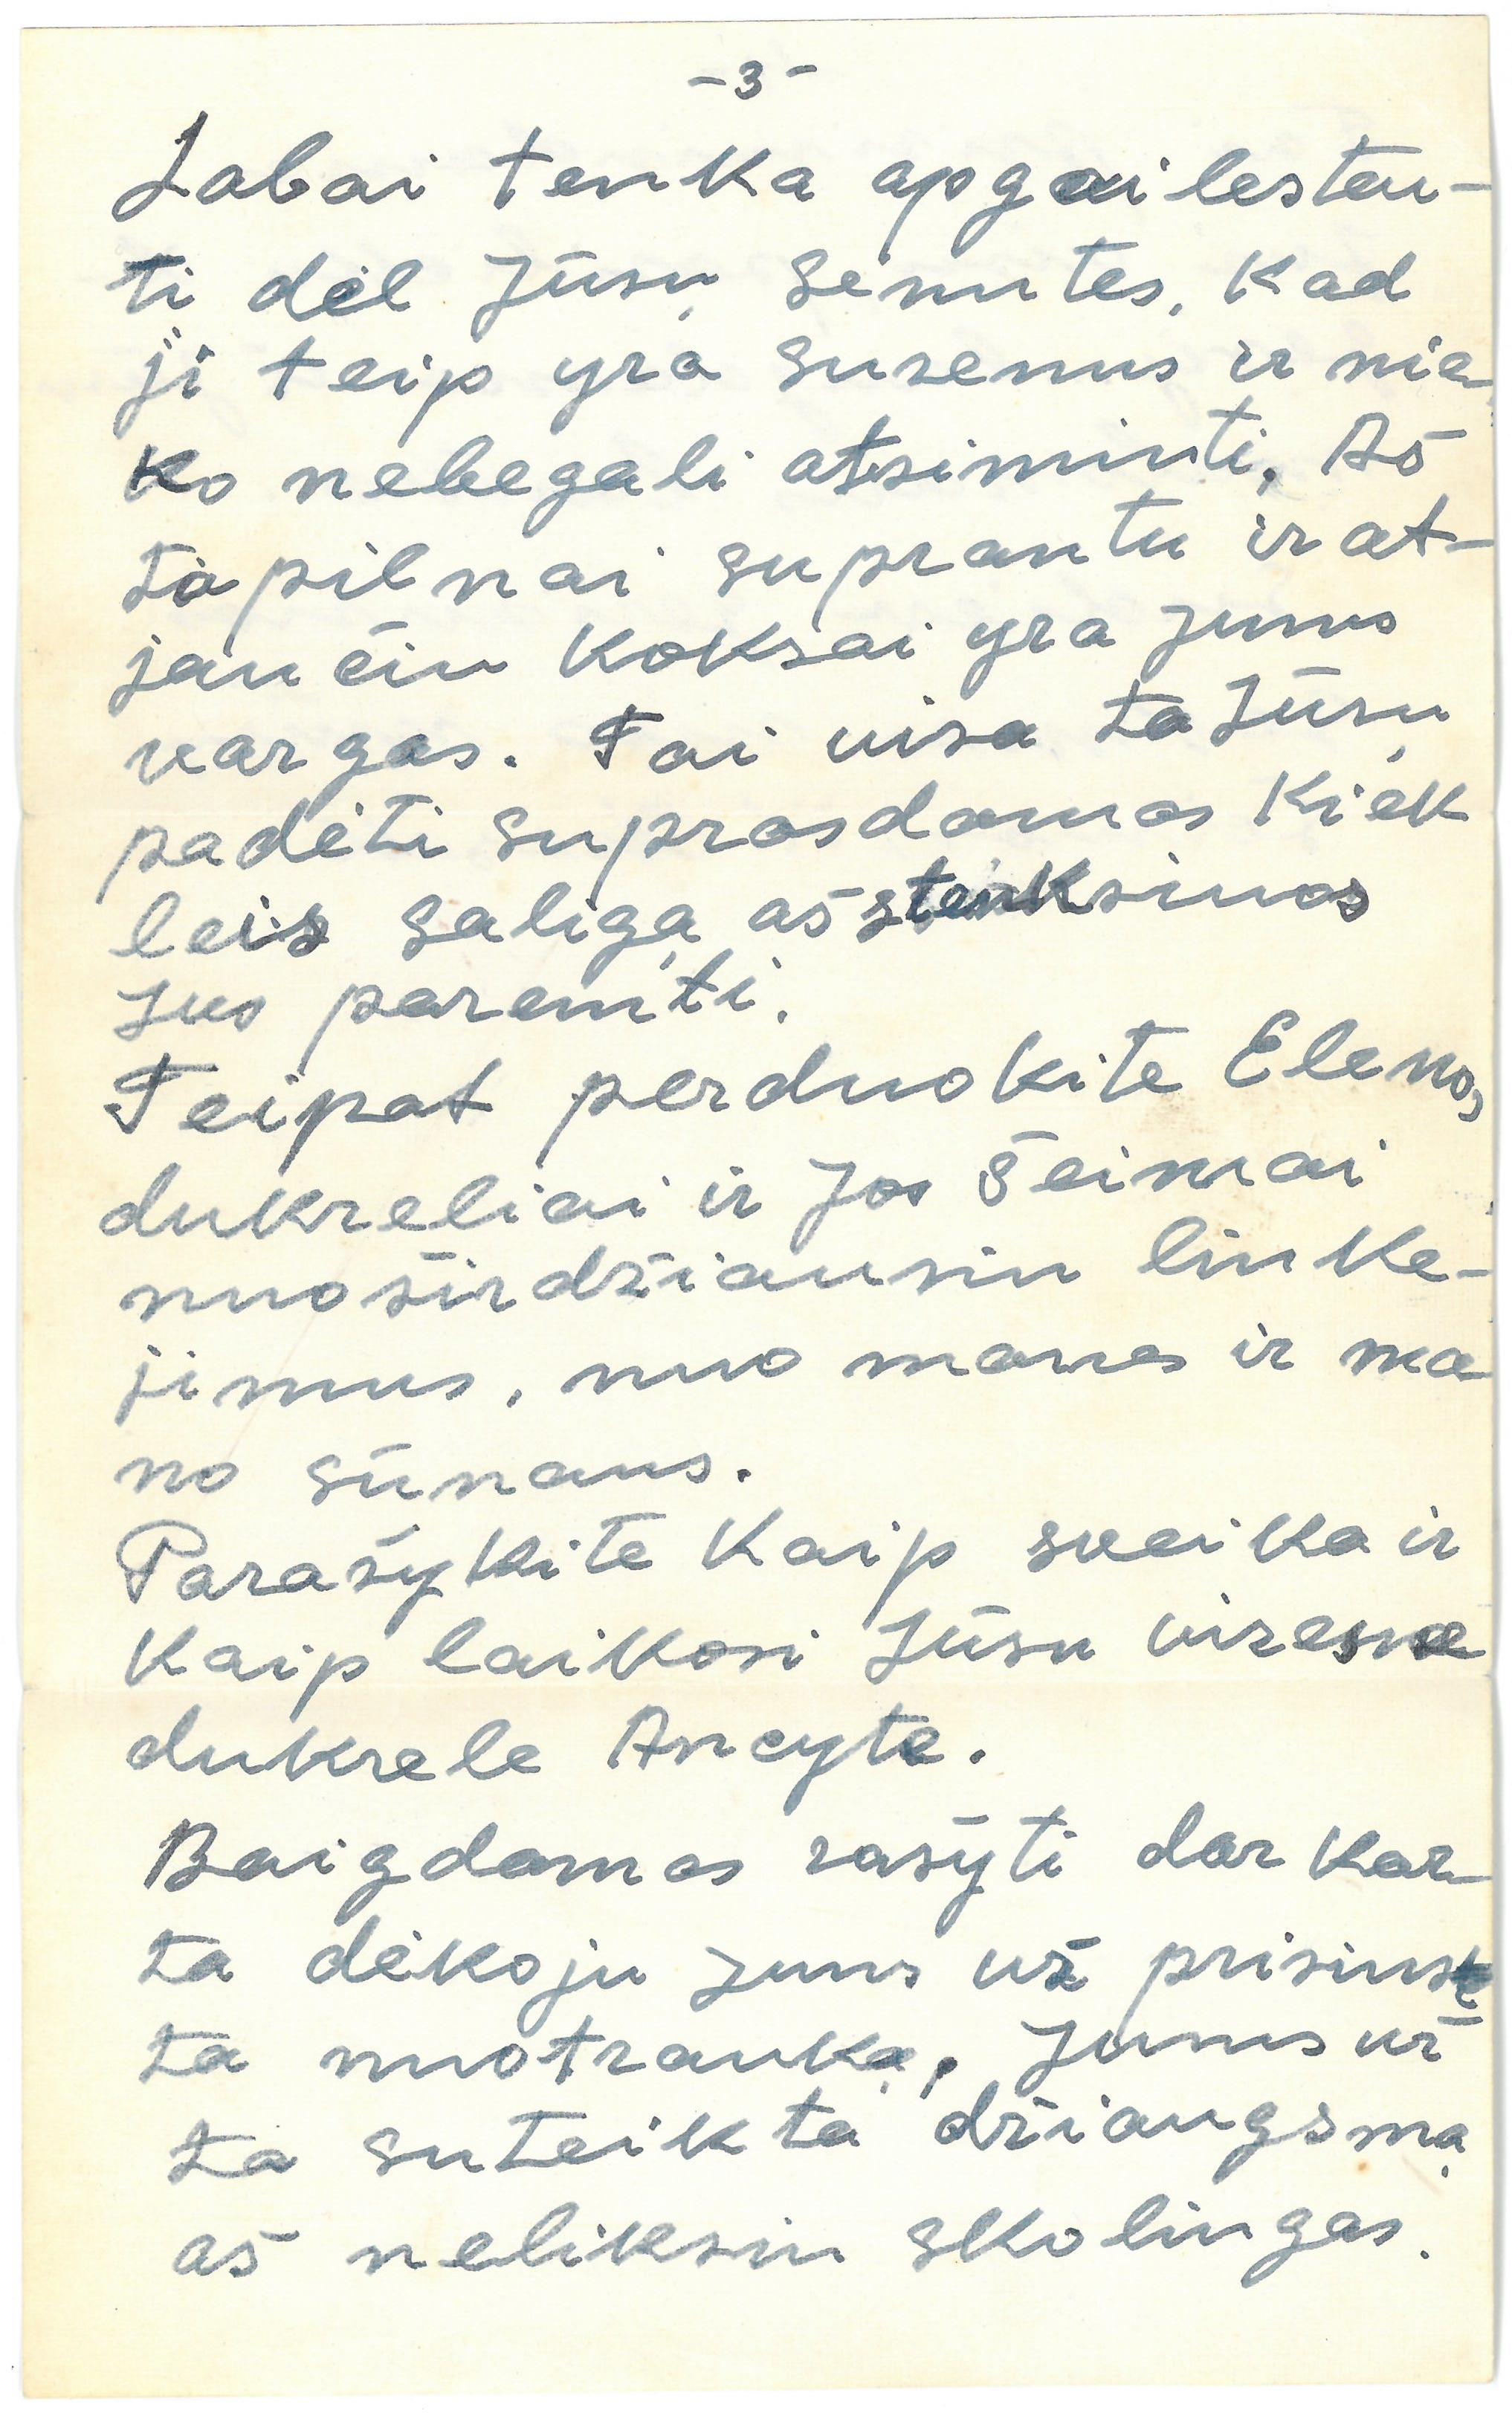 -3-
Labai tenka apgailestau-
ti dėl Jūsų senutes, kad
ji teip yra susenus ir nie-
ko nebegali atsiminti. Aš
ta pilnai suprantu ir at-
jaučiu koksai yra Jums
vargas. Tai visa ta Jūsų
padėti suprasdamas kiek
leis galigą aš stenksiuos
Jus paremti.
Teipat perduokite Elenos,
dukreliai ir Jos šeimai
nuoširdžiausiu linke-
jimus, nuo manes ir ma
no sūnaus.
Parašykite kaip sveika ir
kaip laikosi Jūsu vizesne
dukrele Ancyte.
Baigdamas rašyti dar kar-
ta dėkoju Jums už prisius
ta nuotrauką, Jums už
ta suteikta džiaugsmą
aš neliksiu skolingas.